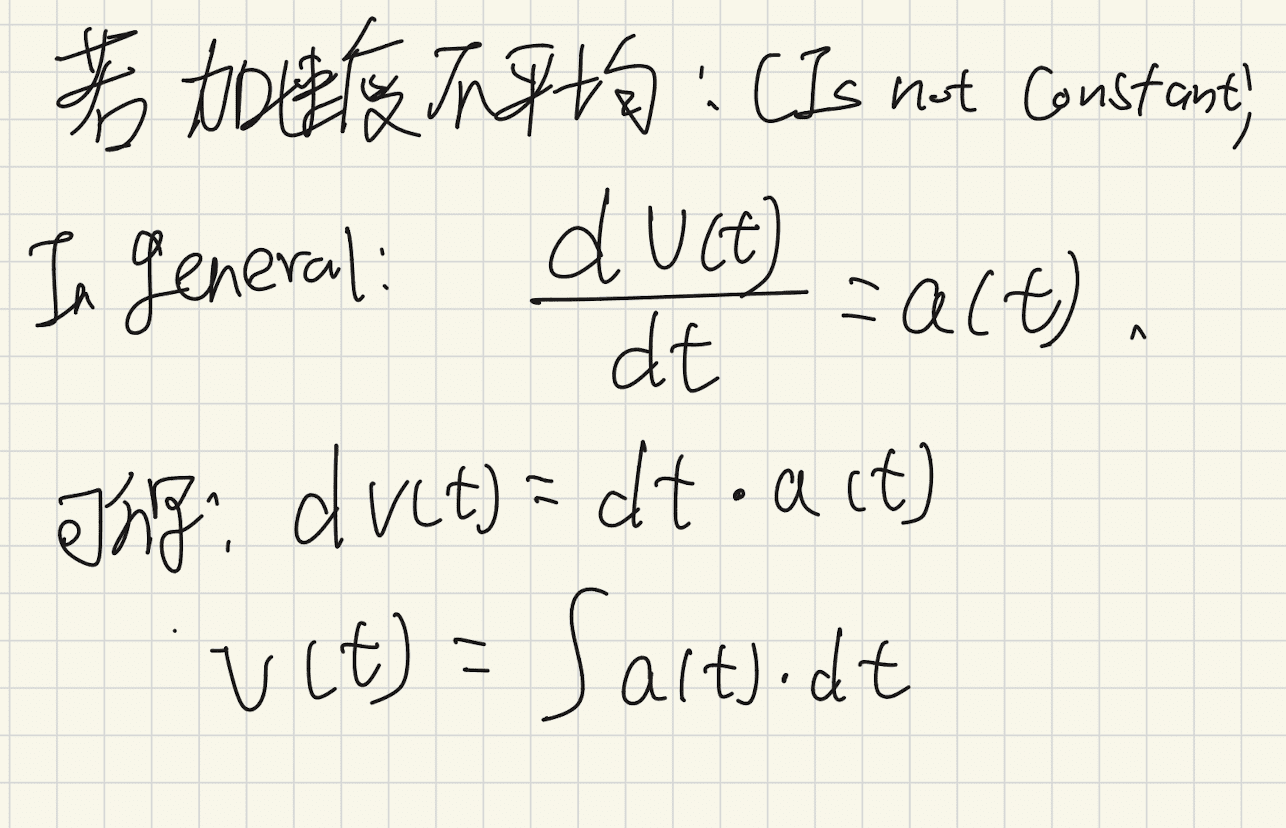 若 加速度不平均：(Is not Constant)
In general: \frac{d V(t)}{dt} = a(t).
可得：d v(t) = dt · a(t)
v(t) = ∫ a(t) · dt